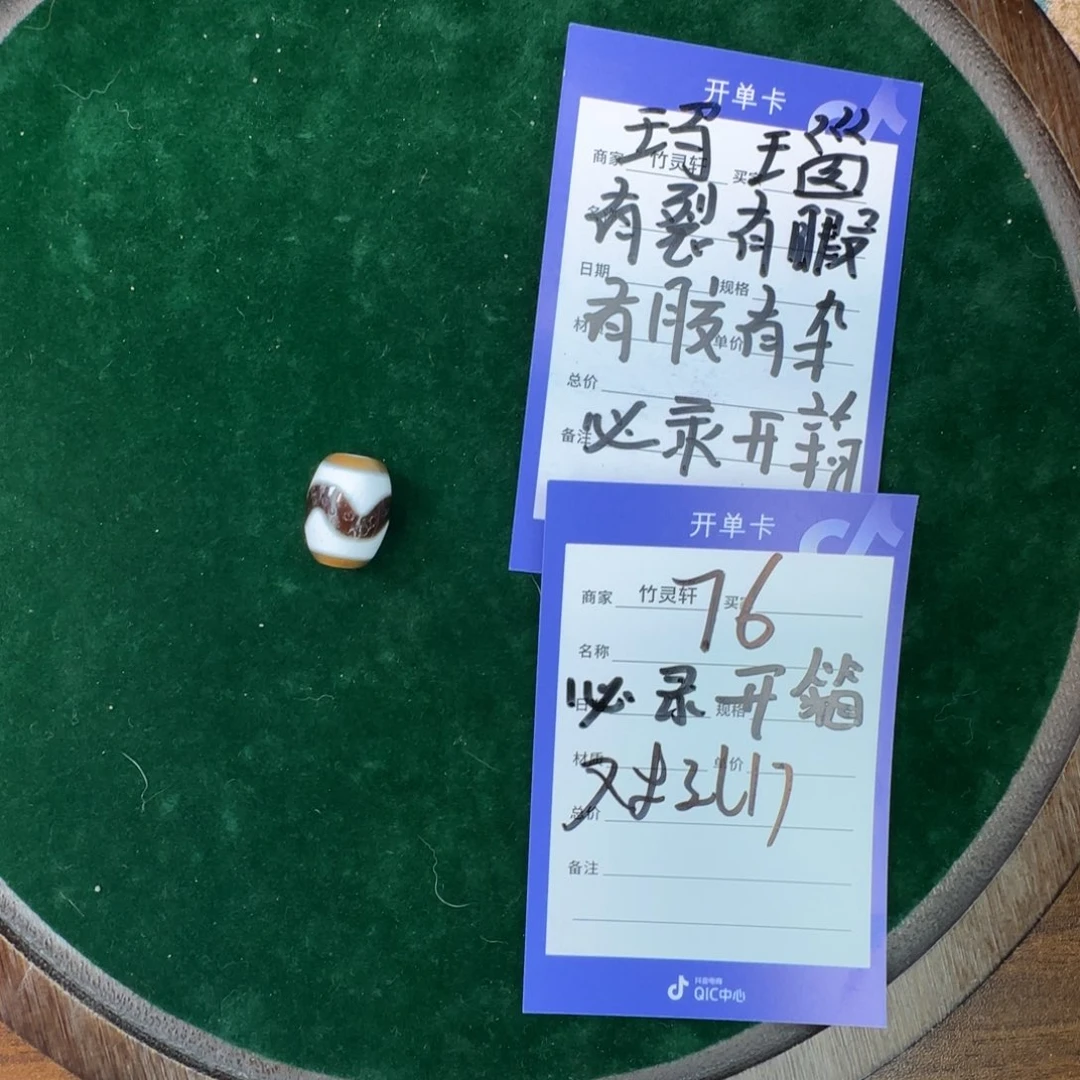 开单卡
玛 瑙
商家 竹灵轩 买
有裂有暇
日期 规格
有胶有杂
材 单价
总价
必录开箱
备注
开单卡
商家 竹灵轩 买
76
名称
必录开箱
日 规格
材质 单价
对孔17
总价
备注
抖音电商
QIC中心